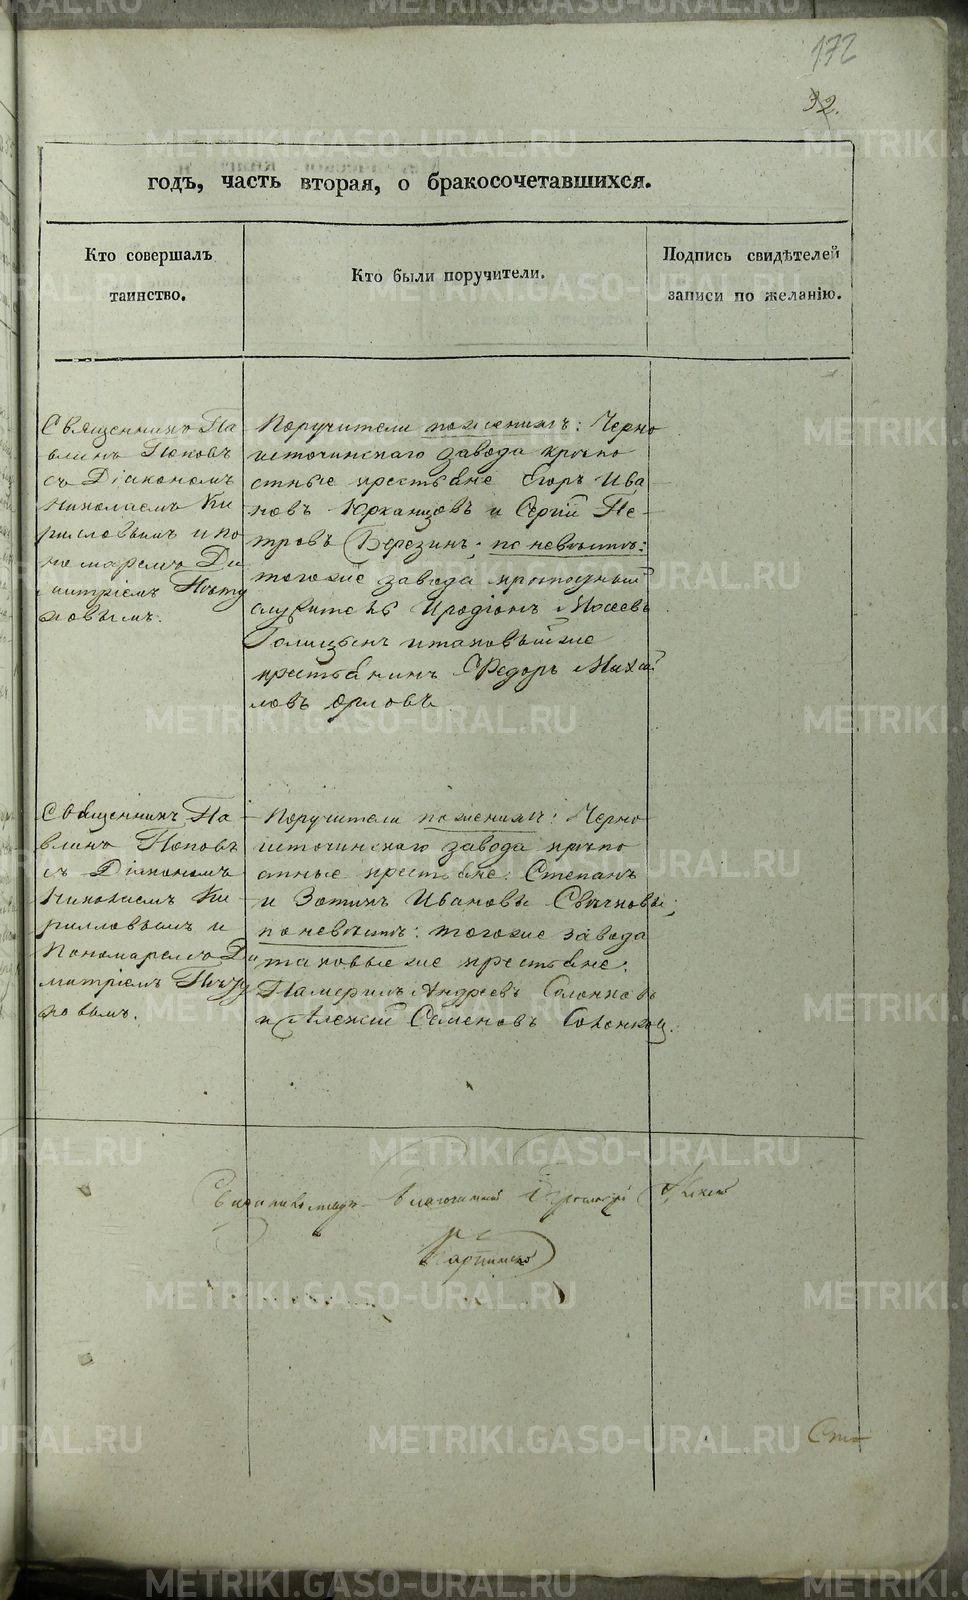 172
32.
годъ, часть вторая, о бракосочетавшихся.
Кто совершалъ
таинство.
Кто были поручители.
Подпись свидѣтелей
записи по желанію.
Священникъ Па
влинъ Поповъ
съ Діакономъ
Николаемъ Ки
риловымъ и по
номаремъ Ди
митріемъ
Поручители по женихѣ: Черно
источинскаго завода крѣпо
стные крестьяне Егоръ Ива
новъ и Сергій Пе
тровъ Березинъ; по невѣстѣ:
тогоже завода
служитель Иродіонъ Моѵсеевъ
Голицынъ и таковый же
крестьянинъ Федоръ Михай
ловъ Орловъ
Священникъ Па
влинъ Поповъ
съ Діакономъ
Николаемъ Ки
рилловымъ и
Пономаремъ Ди
митріемъ
Поручители по женихѣ: Черно
источинскаго завода крѣпо
стные крестьяне: Степанъ
и Зотикъ Ивановы Свѣчковы;
по невѣстѣ: тогоже завода
таковые же крестьяне:
Андреевъ
и Алексѣй Семеновъ
Благочинный
METRIKI.GASO-URAL.RU